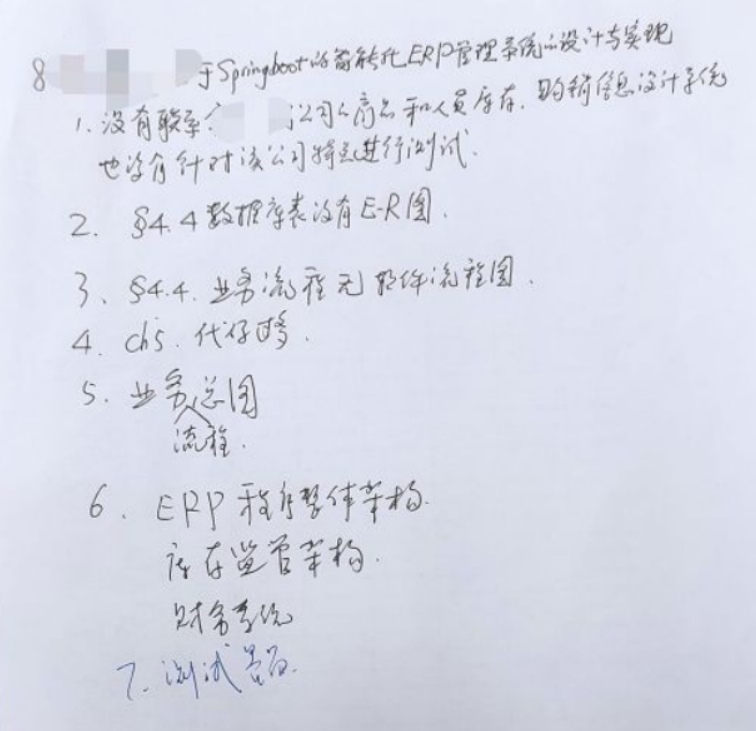 8 于Springboot的智能化ERP管理系统的设计与实现
1. 没有联系 公司产品和人员库存、购销信息设计系统
也没有针对该公司特点进行测试.
2. §4.4 数据库表没有E-R图.
3、§4.4. 业务流程无软件流程图.
4. ch5. 代码
5. 业务总图
流程.
6. ERP程序整体架构.
库存监管架构.
财务系统
7. 测试